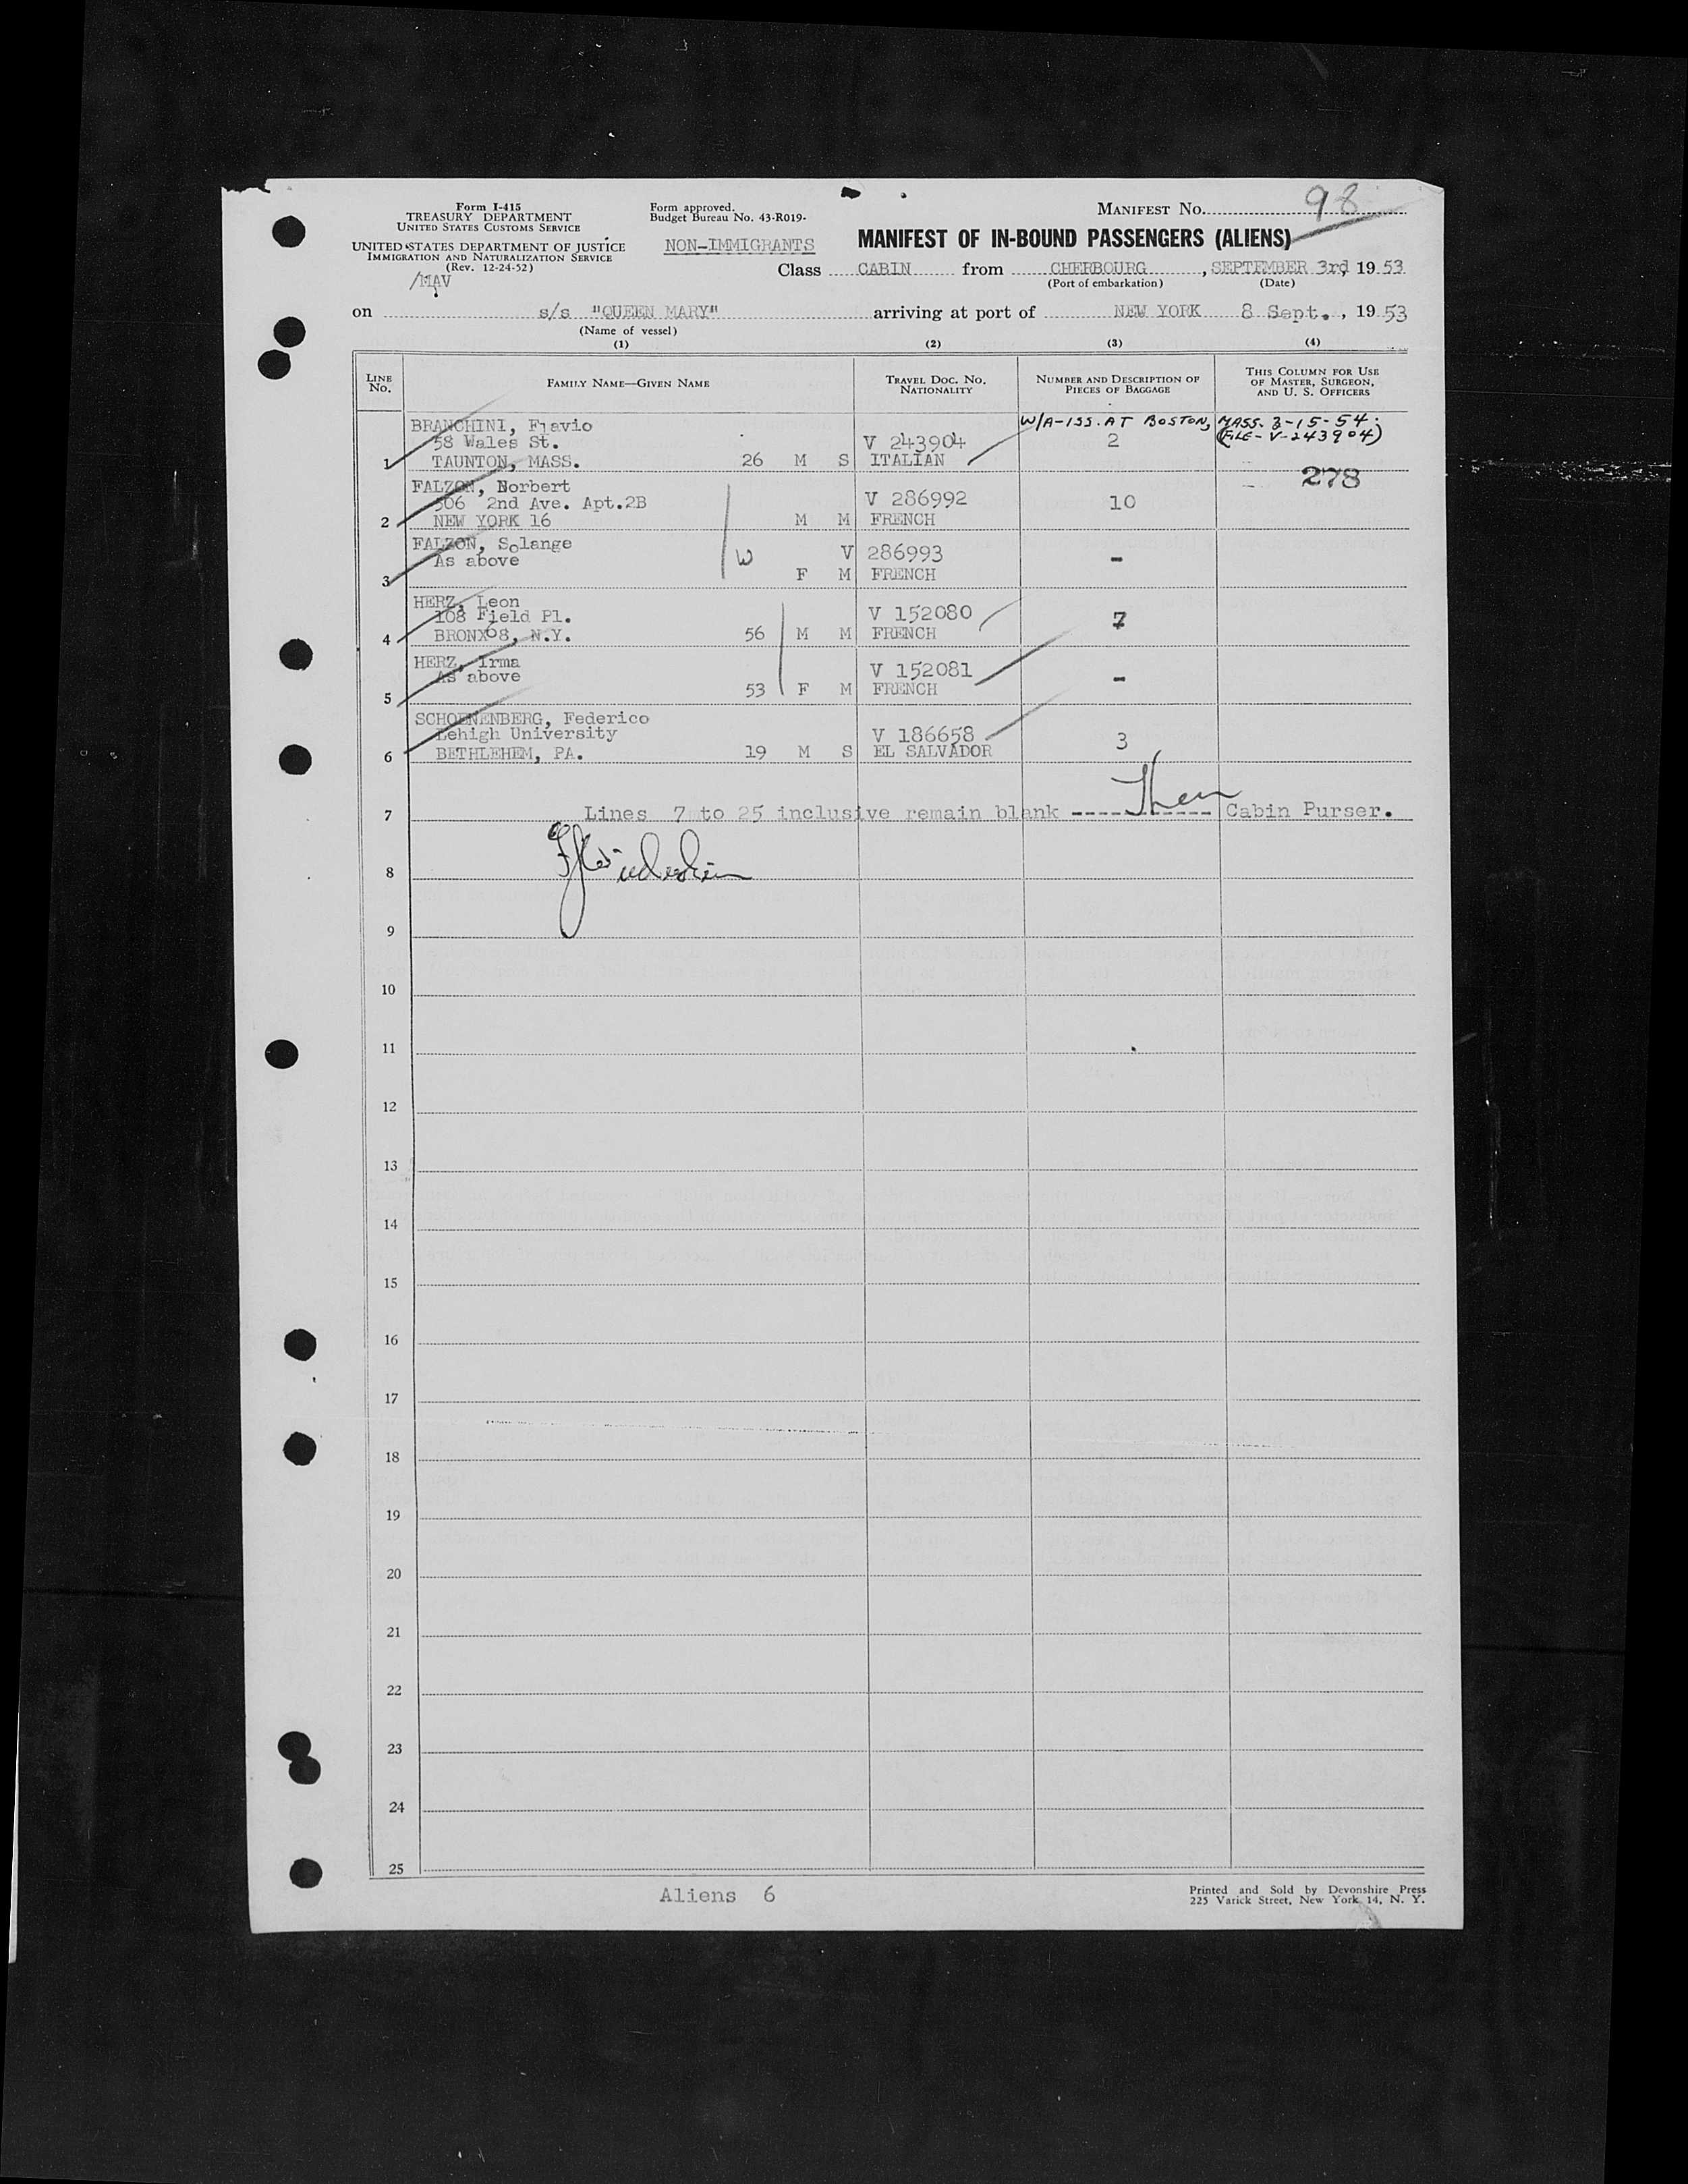 Form I-415
TREASURY DEPARTMENT
UNITED STATES CUSTOMS SERVICE
UNITED STATES DEPARTMENT OF JUSTICE
IMMIGRATION AND NATURALIZATION SERVICE
(Rev. 12-24-52)
/MAV
Form approved.
Budget Bureau No. 43-R019-
NON-IMMIGRANTS
MANIFEST No. 98
MANIFEST OF IN-BOUND PASSENGERS (ALIENS)
Class CABIN from CHERBOURG, SEPTEMBER 3rd, 1953
(Port of embarkation) (Date)
on s/s "QUEEN MARY" arriving at port of NEW YORK 8 Sept., 1953
(Name of vessel)
(1) (2) (3) (4)
LINE No. FAMILY NAME—GIVEN NAME TRAVEL DOC. NO. NATIONALITY NUMBER AND DESCRIPTION OF PIECES OF BAGGAGE THIS COLUMN FOR USE OF MASTER, SURGEON, AND U. S. OFFICERS
BRANCHINI, Flavio W/A-ISS. AT BOSTON, MASS. 3-15-54.
58 Wales St. V 243904 2 (FILE-V-243904)
1 TAUNTON, MASS. 26 M S ITALIAN
278
FALZON, Norbert
506 2nd Ave. Apt.2B V 286992 10
2 NEW YORK 16 M M FRENCH
FALZON, Solange
As above W V 286993 -
3 F M FRENCH
HERZ, Leon
108 Field Pl. V 152080 7
4 BRONX 8, N.Y. 56 M M FRENCH
HERZ, Irma
As above V 152081 -
5 53 F M FRENCH
SCHOENENBERG, Federico
Lehigh University V 186658 3
6 BETHLEHEM, PA. 19 M S EL SALVADOR
7 Lines 7 to 25 inclusive remain blank ------------ Cabin Purser.
8
9
10
11
12
13
14
15
16
17
18
19
20
21
22
23
24
25
Aliens 6
Printed and Sold by Devonshire Press
225 Varick Street, New York 14, N. Y.